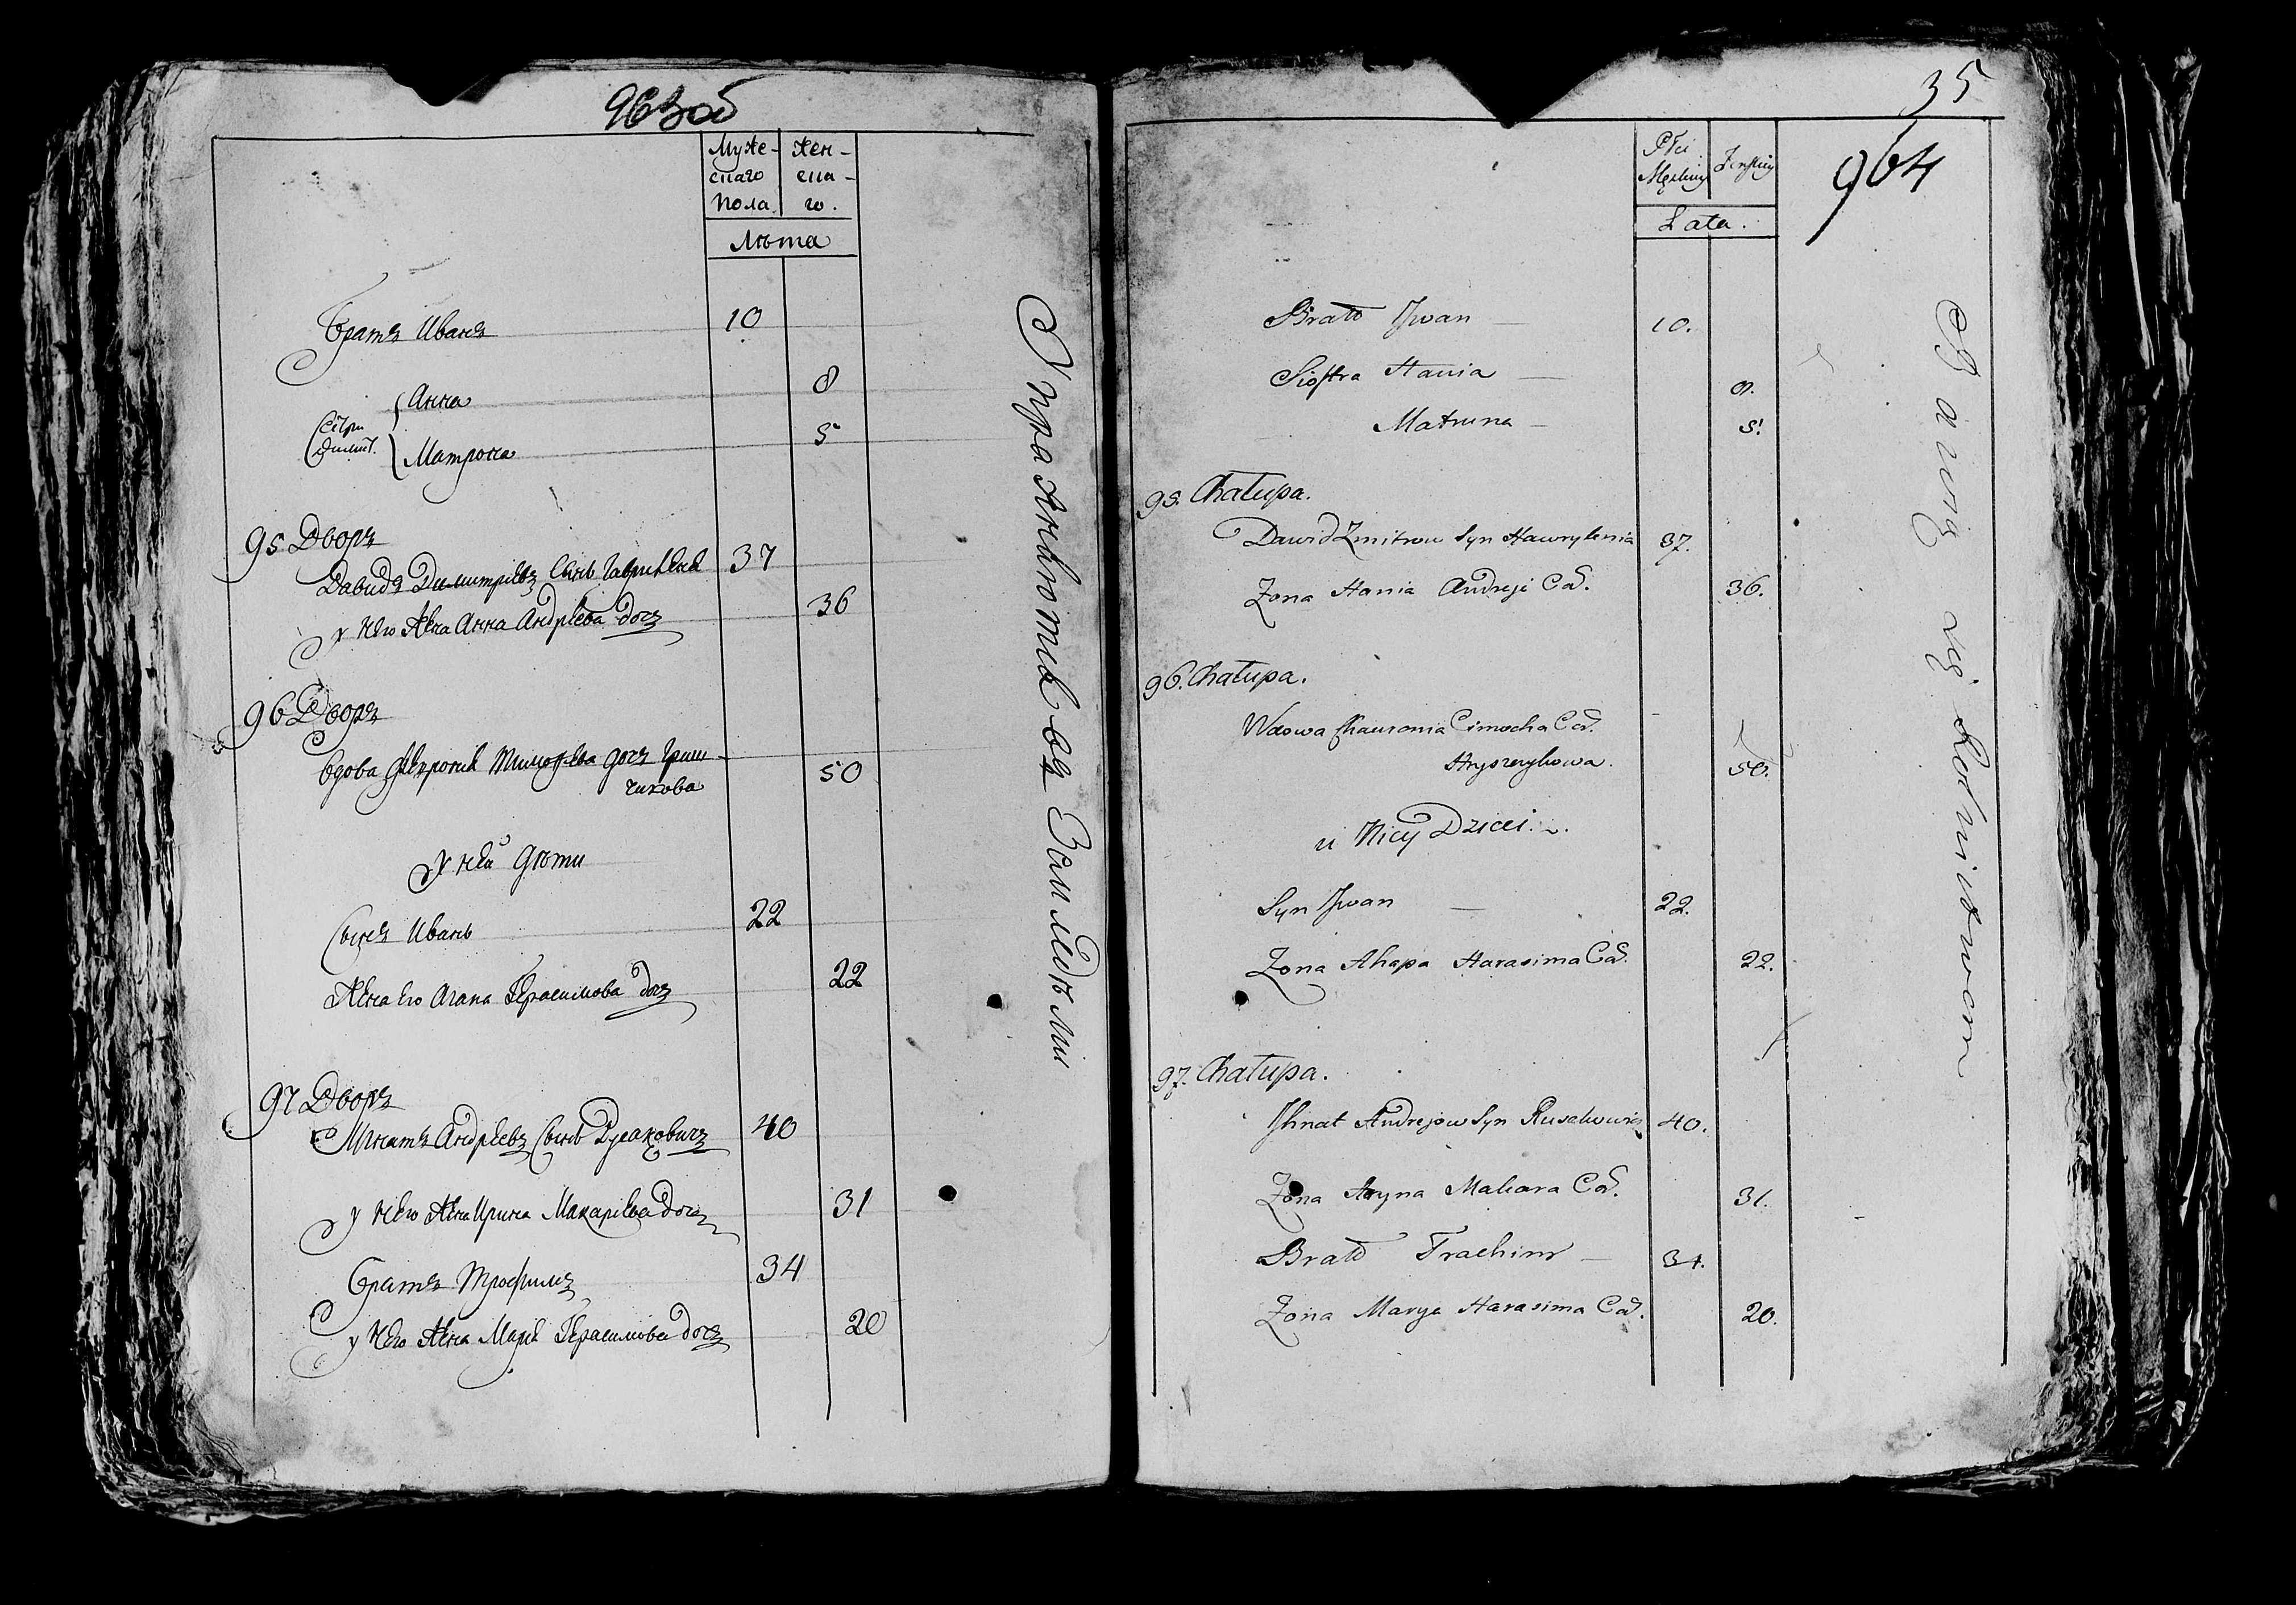 963 об
Муже-
скаго
пола.
Жен-
ска-
го.
Лѣта
Братъ Иванъ 10
Анна 8
Матрона 5
95 Дворъ
Давидъ Димитріевъ Сынъ 37
у Него Жена Анна Андреева дочь 36
96 Дворъ
Вдова Тимофеева дочь Гриш-
чикова 50
У ней дѣти
Сынъ Иванъ 22
Жена Его Агапа Герасимова дочь 22
97 Дворъ
Игнатъ Андреевъ Сынъ Русаковичъ 40
у Него Жена Ирина Макарьева дочь 31
Братъ Трофимъ 34
у Него Жена Марья Герасимова дочь 20
Упражняются въ Земледѣліи
35
964
Płci
Męskiey
Żeńskiey
Lata.
Bratt Jwan 10.
Siostra Hania 8.
Matruna 5.
95. Chałupa.
Dawid Zmitrow Syn Hawrylenia 37.
Żona Hania Andreji Cór. 36.
96. Chałupa.
Wdowa Chauronia Cimocha Cór.
Hryszczykowa. 50.
u Nicy Dzieci.
Syn Jwan 22.
Żona Ahapa Harasima Cór. 22.
97. Chałupa.
Jhnat Andrejow Syn Rusakowicz 40.
Żona Aryna Makara Cór. 31.
Bratt Trachim 34.
Żona Marya Harasima Cór. 20.
Bawią się Rolnictwem